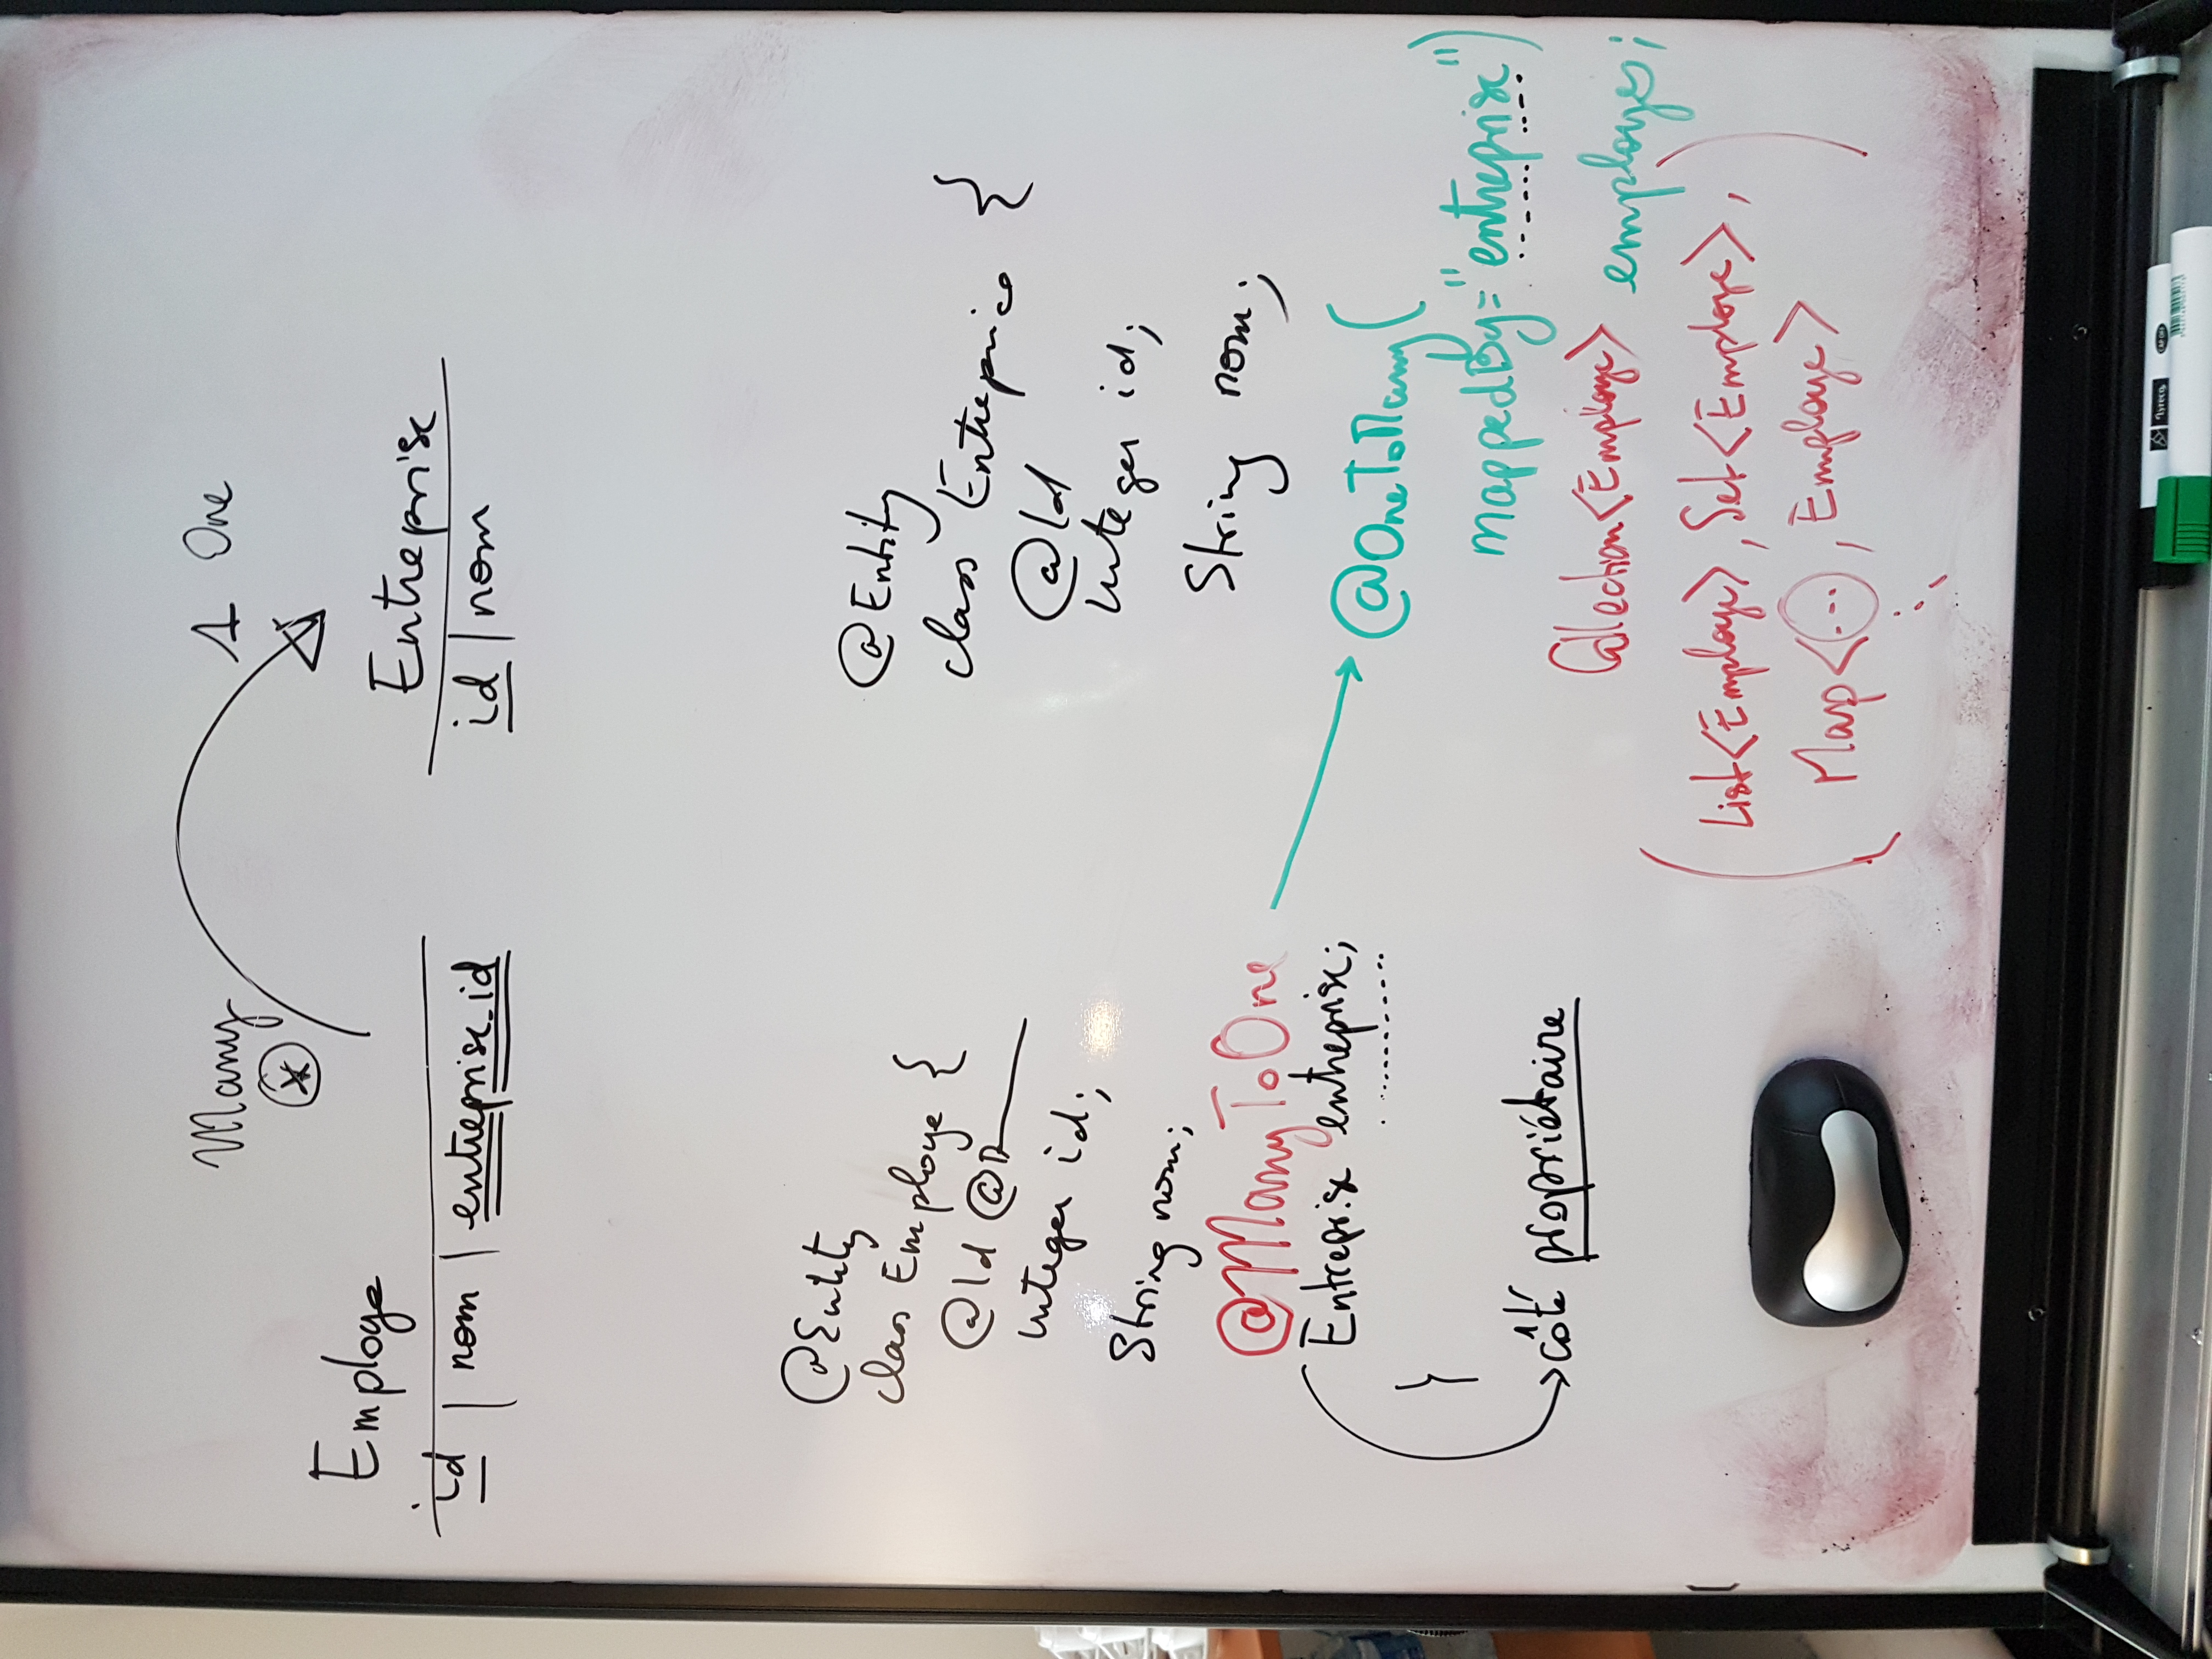 Many
1 One
*
Employe
id | nom | entreprise_id
Entreprise
id | nom
@Entity
class Employe {
@Id @
Integer id;
String nom;
@ManyToOne
Entreprise entreprise;
}
côté propriétaire
@Entity
class Entreprise {
@Id
Integer id;
String nom;
@OneToMany(
mappedBy="entreprise")
Collection<Employe> employes;
(List<Employe>, Set<Employe>,
Map<..., Employe>)
lyreco
CAP OFF